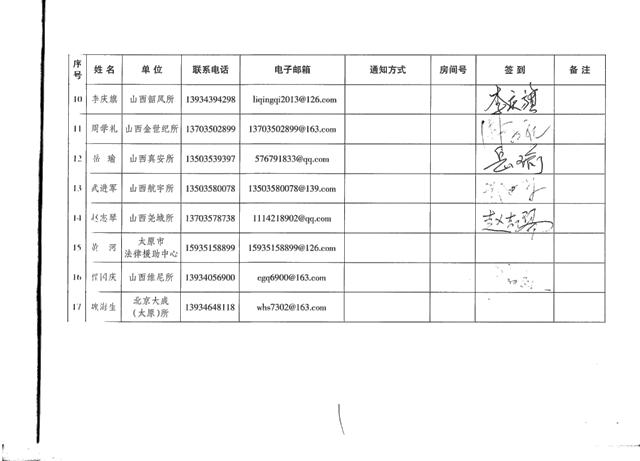 序号 姓名 单位 联系电话 电子邮箱 通知方式 房间号 签到 备注
10 李庆旗 山西韶风所 13934394298 liqingqi2013@126.com 李庆旗
11 周学礼 山西金世纪所 13703502899 13703502899@163.com
12 岳瑜 山西真安所 13503539397 576791833@qq.com 岳瑜
13 武进军 山西航宇所 13503580078 13503580078@139.com
14 赵志琴 山西尧城所 13703578738 1114218902@qq.com 赵志琴
15 黄河 太原市
法律援助中心 15935158899 15935158899@126.com
16 国庆 山西维尼所 13934056900 cgq6900@163.com
17 北京大成
(太原)所 13934648118 whs7302@163.com